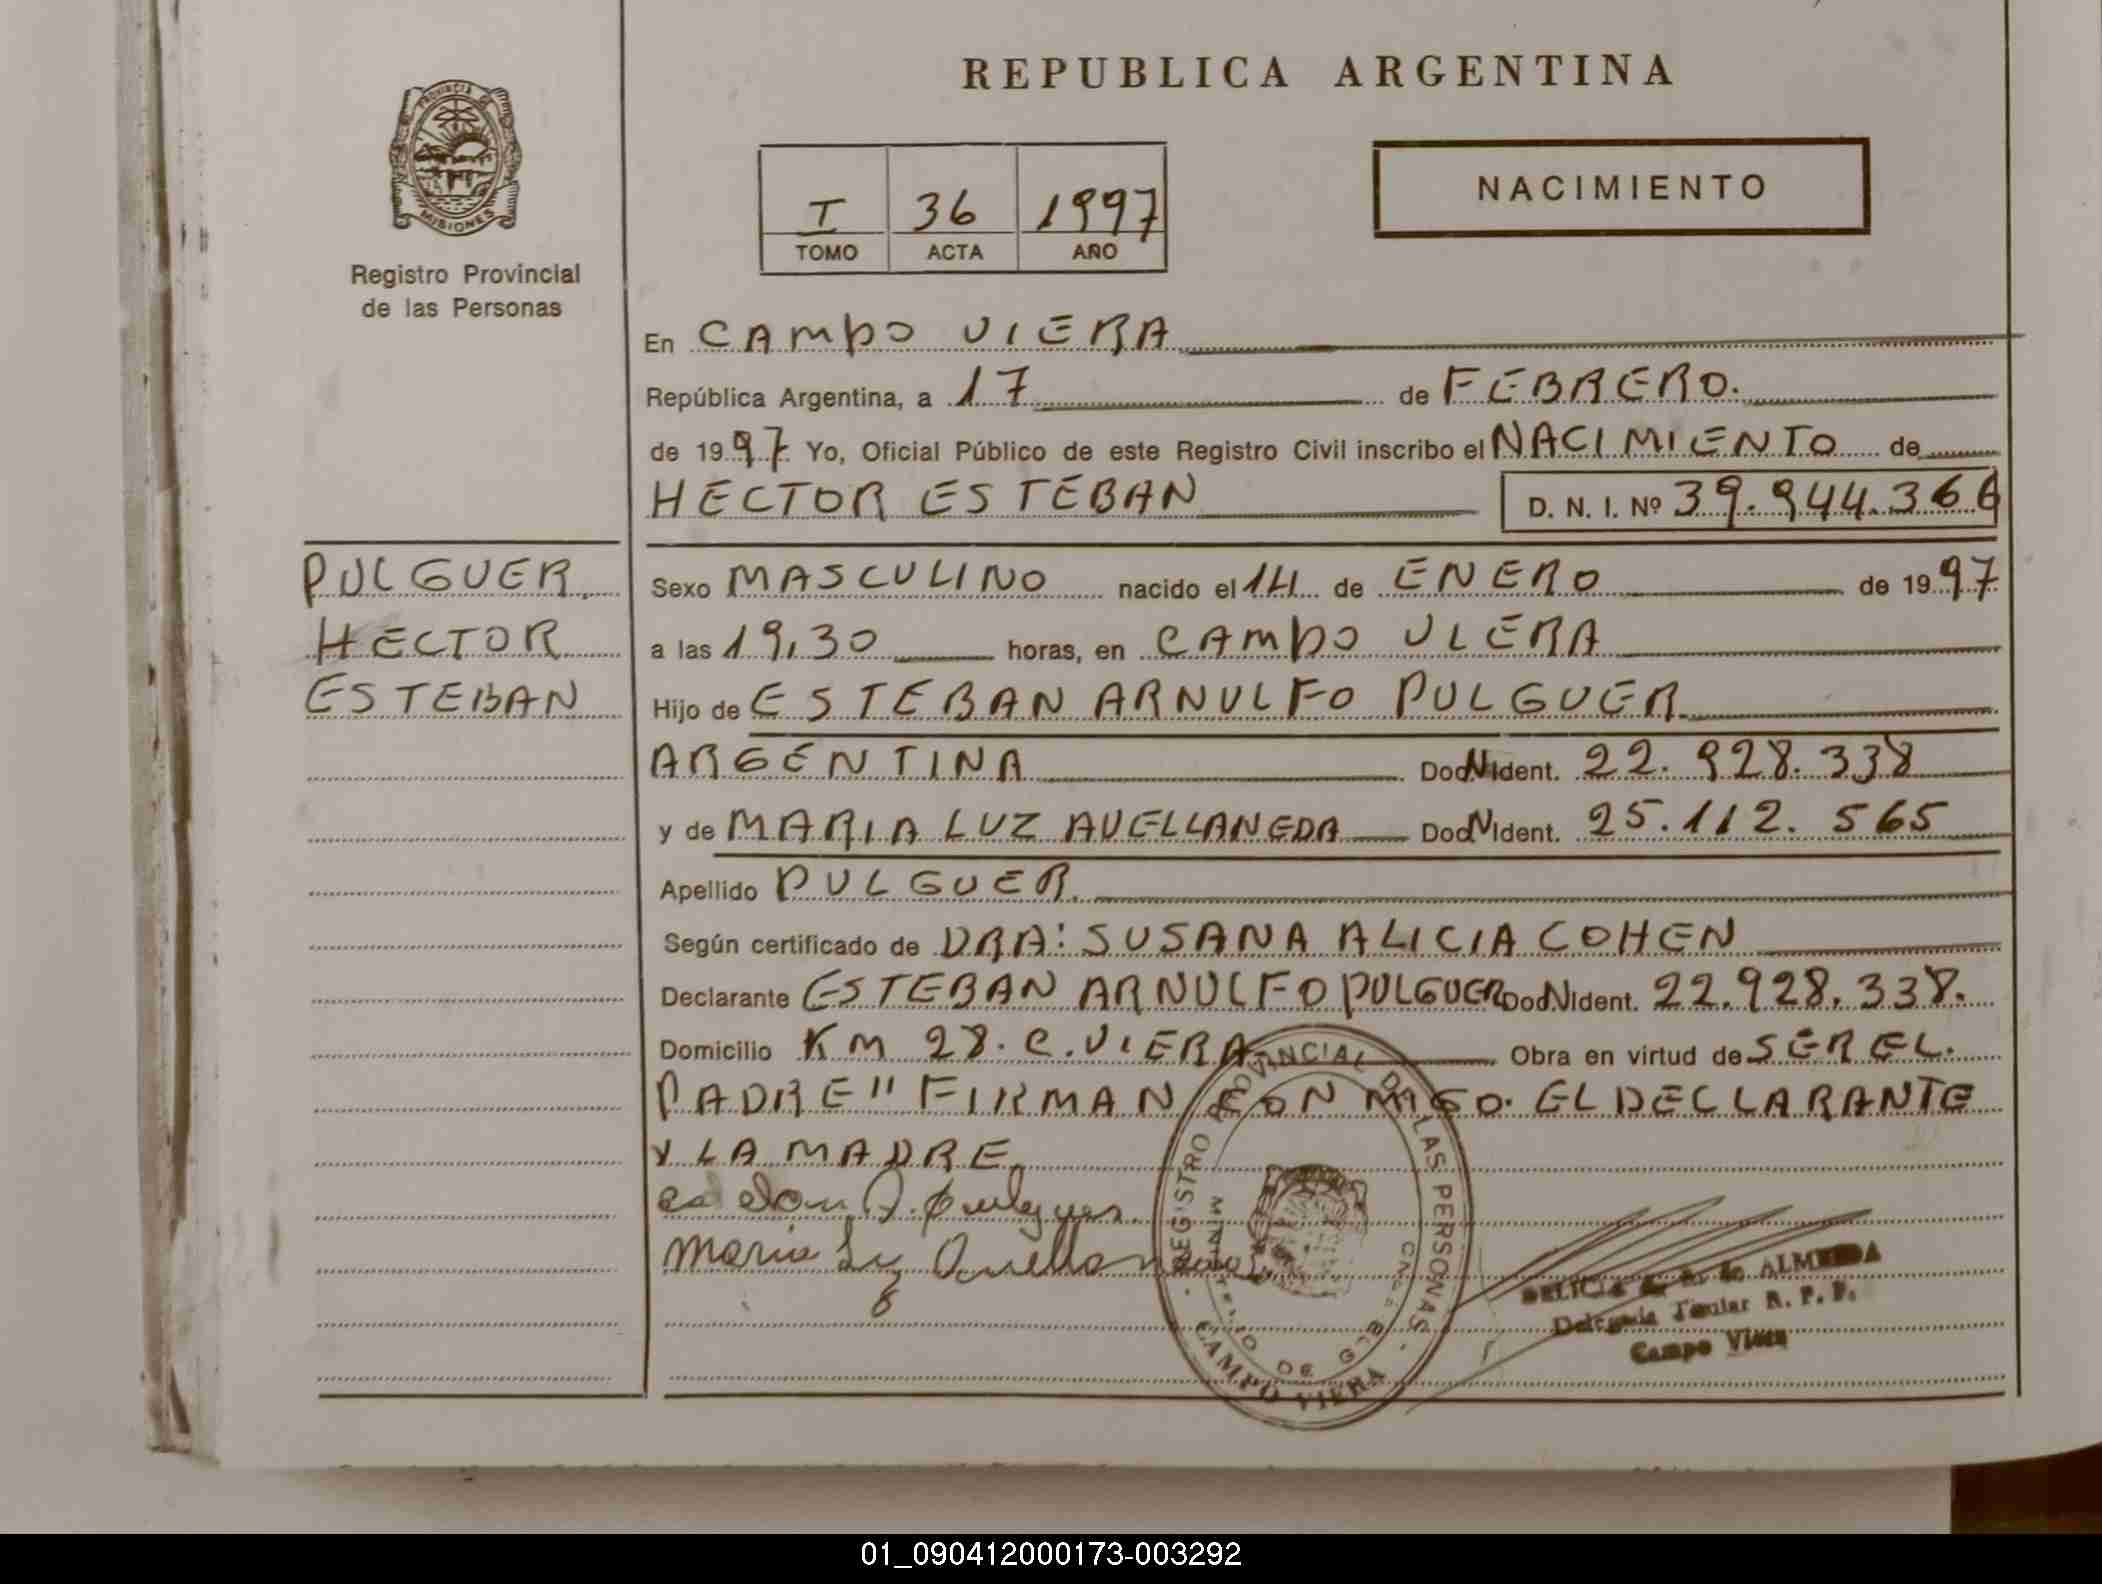 REPUBLICA ARGENTINA
PROVINCIA DE
MISIONES
Registro Provincial
de las Personas
I 36 1997
TOMO ACTA AÑO
NACIMIENTO
En CAMPO VIERA
República Argentina, a 17 de FEBRERO.
de 1997 Yo, Oficial Público de este Registro Civil inscribo el NACIMIENTO de
HECTOR ESTEBAN D. N. I. Nº 39.944.366
PULGUER
HECTOR
ESTEBAN
Sexo MASCULINO nacido el 14 de ENERO de 1997
a las 19,30 horas, en CAMPO VIERA
Hijo de ESTEBAN ARNULFO PULGUER
ARGENTINA Doc.N.Ident. 22.928.338
y de MARIA LUZ AVELLANEDA Doc.N.Ident. 25.112.565
Apellido PULGUER
Según certificado de DRA: SUSANA ALICIA COHEN
Declarante ESTEBAN ARNULFO PULGUER Doc.N.Ident. 22.928.338.
Domicilio KM 28. C. VIERA Obra en virtud de SER EL.
PADRE" FIRMAN CON MIGO. EL DECLARANTE
Y LA MADRE
Maria Luz Avellaneda
REGISTRO PROVINCIAL DE LAS PERSONAS
CAMPO VIERA
DELICIA de ALMEIDA
Delegada Titular R. P. P.
Campo Viera
01_090412000173-003292